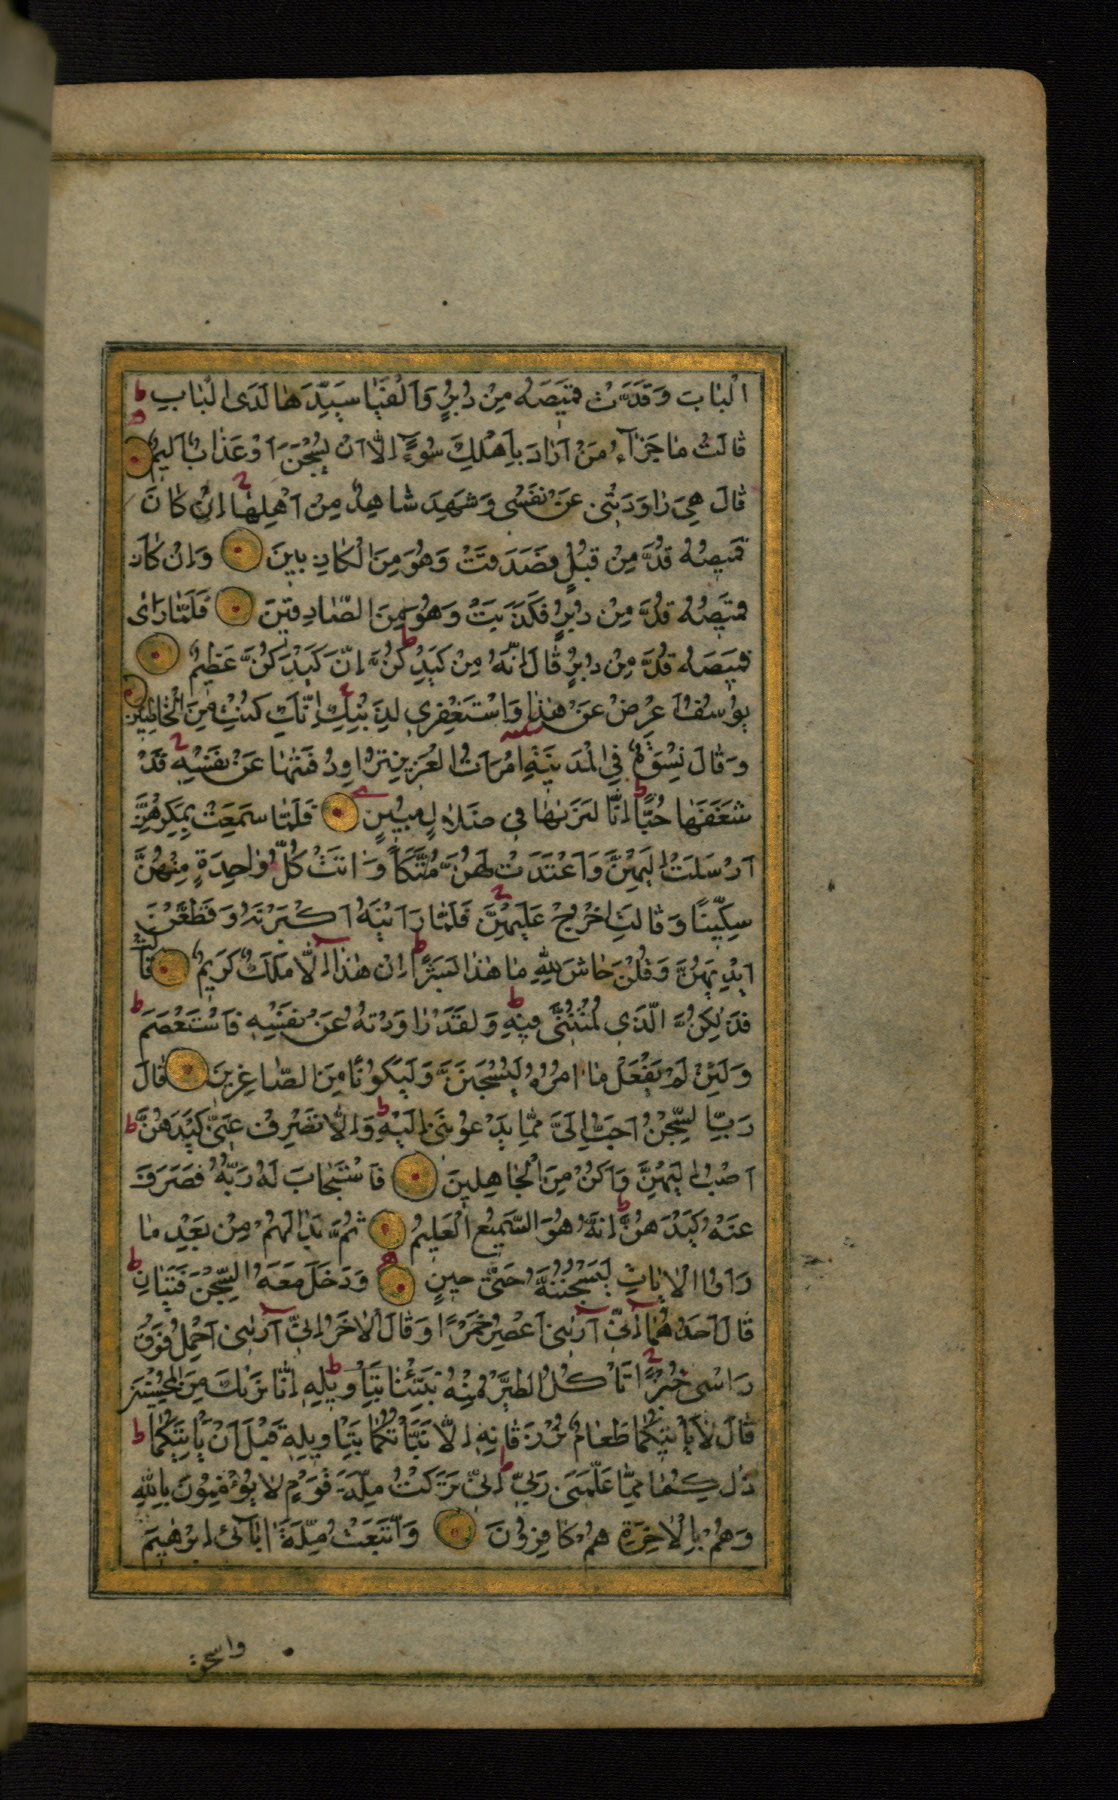 الْبَابَ وَقَدَّتْ قَمِيصَهُ مِنْ دُبُرٍ وَاَلْفَيَا سَيِّدَهَا لَدَى الْبَابِ ط
قَالَتْ مَا جَزَآءُ مَنْ اَرَادَ بِاَهْلِكَ سُوءً اِلَّا اَنْ يُسْجَنَ اَوْ عَذَابٌ اَلِيمٌ
قَالَ هِيَ رَاوَدَتْنِى عَنْ نَفْسِى وَشَهِدَ شَاهِدٌ مِنْ اَهْلِهَا اِنْ كَانَ
قَمِيصُهُ قُدَّ مِنْ قُبُلٍ فَصَدَقَتْ وَهُوَ مِنَ الْكَاذِبِينَ وَاِنْ كَانَ
قَمِيصُهُ قُدَّ مِنْ دُبُرٍ فَكَذَبَتْ وَهُوَ مِنَ الصَّادِقِينَ فَلَمَّا رَاٰى
قَمِيصَهُ قُدَّ مِنْ دُبُرٍ قَالَ اِنَّهُ مِنْ كَيْدِكُنَّ ط اِنَّ كَيْدَكُنَّ عَظِيمٌ
يُوسُفُ اَعْرِضْ عَنْ هٰذَا وَاسْتَغْفِرِي لِذَنْبِكِ اِنَّكِ كُنْتِ مِنَ الْخَاطِئِينَ
وَقَالَ نِسْوَةٌ فِي الْمَدِينَةِ امْرَاَتُ الْعَزِيزِ تُرَاوِدُ فَتٰيهَا عَنْ نَفْسِهِ قَدْ
شَغَفَهَا حُبًّا ط اِنَّا لَنَرٰيهَا فِي ضَلَالٍ مُبِينٍ فَلَمَّا سَمِعَتْ بِمَكْرِهِنَّ
اَرْسَلَتْ اِلَيْهِنَّ وَاَعْتَدَتْ لَهُنَّ مُتَّكَاً وَاٰتَتْ كُلَّ وَاحِدَةٍ مِنْهُنَّ
سِكِّينًا وَقَالَتِ اخْرُجْ عَلَيْهِنَّ فَلَمَّا رَاَيْنَهُ اَكْبَرْنَهُ وَقَطَّعْنَ
اَيْدِيَهُنَّ وَقُلْنَ حَاشَ لِلّٰهِ مَا هٰذَا بَشَرًا ط اِنْ هٰذَا اِلَّا مَلَكٌ كَرِيمٌ قَالَتْ
فَذٰلِكُنَّ الَّذِي لُمْتُنَّنِى فِيهِ ط وَلَقَدْ رَاوَدْتُهُ عَنْ نَفْسِهِ فَاسْتَعْصَمَ ط
وَلَئِنْ لَمْ يَفْعَلْ مَا اٰمُرُهُ لَيُسْجَنَنَّ وَلَيَكُونًا مِنَ الصَّاغِرِينَ قَالَ
رَبِّ السِّجْنُ اَحَبُّ اِلَيَّ مِمَّا يَدْعُونَنِى اِلَيْهِ ط وَاِلَّا تَصْرِفْ عَنِّى كَيْدَهُنَّ ط
اَصْبُ اِلَيْهِنَّ وَاَكُنْ مِنَ الْجَاهِلِينَ فَاسْتَجَابَ لَهُ رَبُّهُ فَصَرَفَ
عَنْهُ كَيْدَهُنَّ ط اِنَّهُ هُوَ السَّمِيعُ الْعَلِيمُ ثُمَّ بَدَا لَهُمْ مِنْ بَعْدِ مَا
رَاَوُا الْاٰيَاتِ لَيَسْجُنُنَّهُ حَتّٰى حِينٍ وَدَخَلَ مَعَهُ السِّجْنَ فَتَيَانِ ط
قَالَ اَحَدُهُمَا اِنّٰى اَرٰينِى اَعْصِرُ خَمْرًا وَقَالَ الْاٰخَرُ اِنّٰى اَرٰينِى اَحْمِلُ فَوْقَ
رَاْسِى خُبْزًا تَاْكُلُ الطَّيْرُ مِنْهُ نَبِّئْنَا بِتَاْوِيلِهِ ط اِنَّا نَرٰيكَ مِنَ الْمُحْسِنِينَ
قَالَ لَا يَاْتِيكُمَا طَعَامٌ تُرْزَقَانِهِ اِلَّا نَبَّاْتُكُمَا بِتَاْوِيلِهِ قَبْلَ اَنْ يَاْتِيَكُمَا ط
ذٰلِكُمَا مِمَّا عَلَّمَنِى رَبِّي ط اِنِّى تَرَكْتُ مِلَّةَ قَوْمٍ لَا يُؤْمِنُونَ بِاللّٰهِ
وَهُمْ بِالْاٰخِرَةِ هُمْ كَافِرُونَ وَاتَّبَعْتُ مِلَّةَ اٰبَآئِى اِبْرٰهِيمَ
واسحق